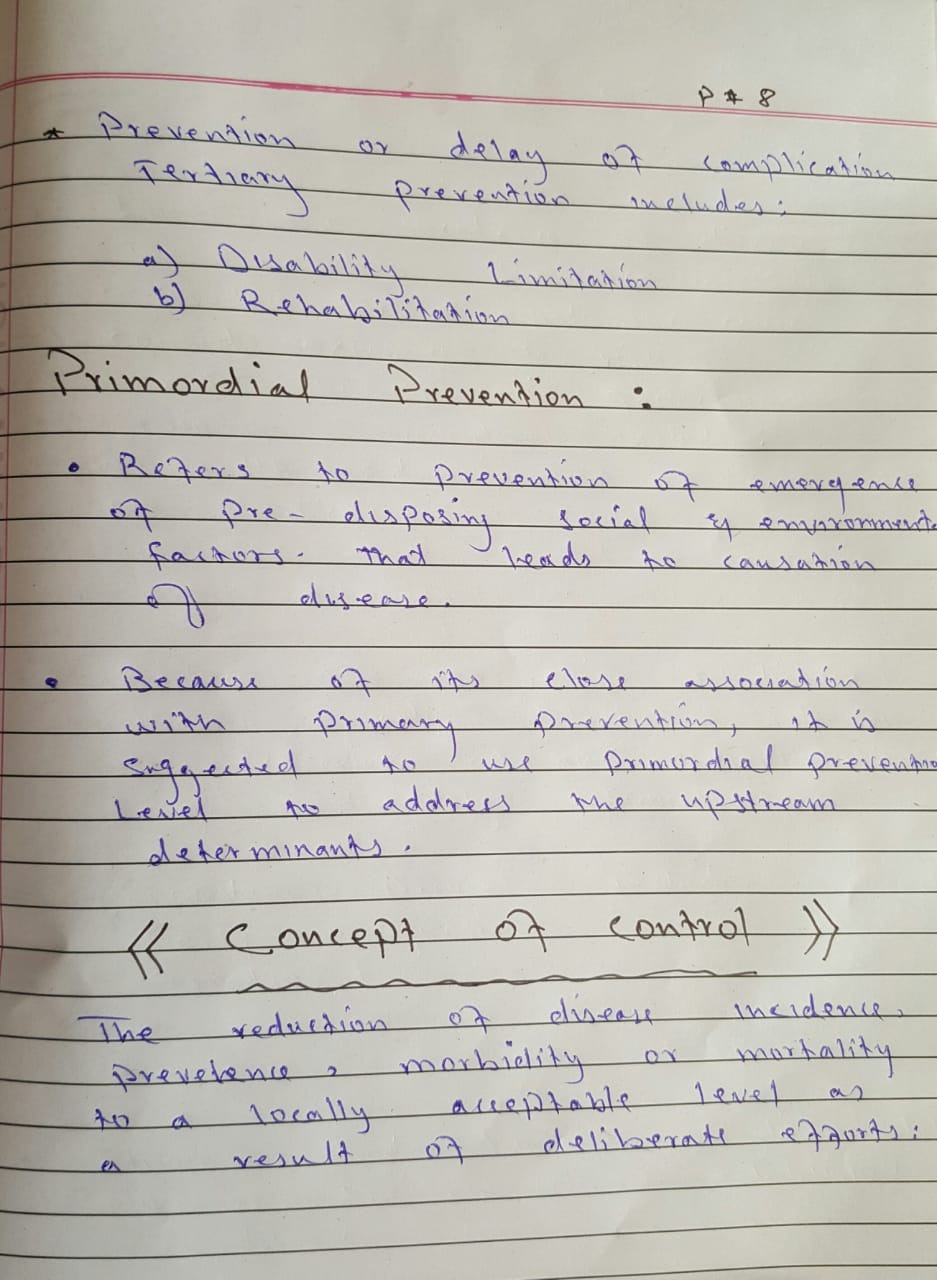 P # 8
* Prevention or delay of complication
Tertiary prevention includes:
a) Disability Limitation
b) Rehabilitation
Primordial Prevention :
• Refers to prevention of emergence
of pre-disposing social & environment
factors. that leads to causation
of disease.
• Because of its close association
with primary prevention, it is
suggested to use primordial prevention
Level to address the upstream
determinants.
<< Concept of control >>
The reduction of disease incidence,
prevelence, morbidity or mortality
to a locally acceptable level as
a result of deliberate efforts: